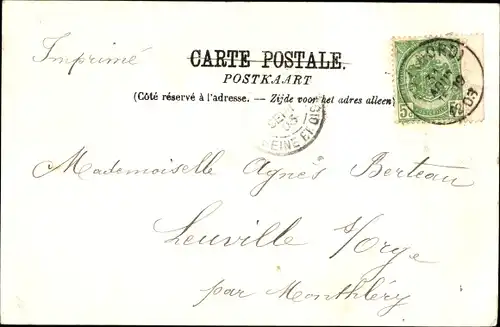 Imprimé
CARTE POSTALE.
POSTKAART
(Côté réservé à l'adresse. — Zijde voor het adres alleen)
5
1903
SEINE ET OISE
Mademoiselle Agnès Berteau
Leuville s/orge
par Monthléry